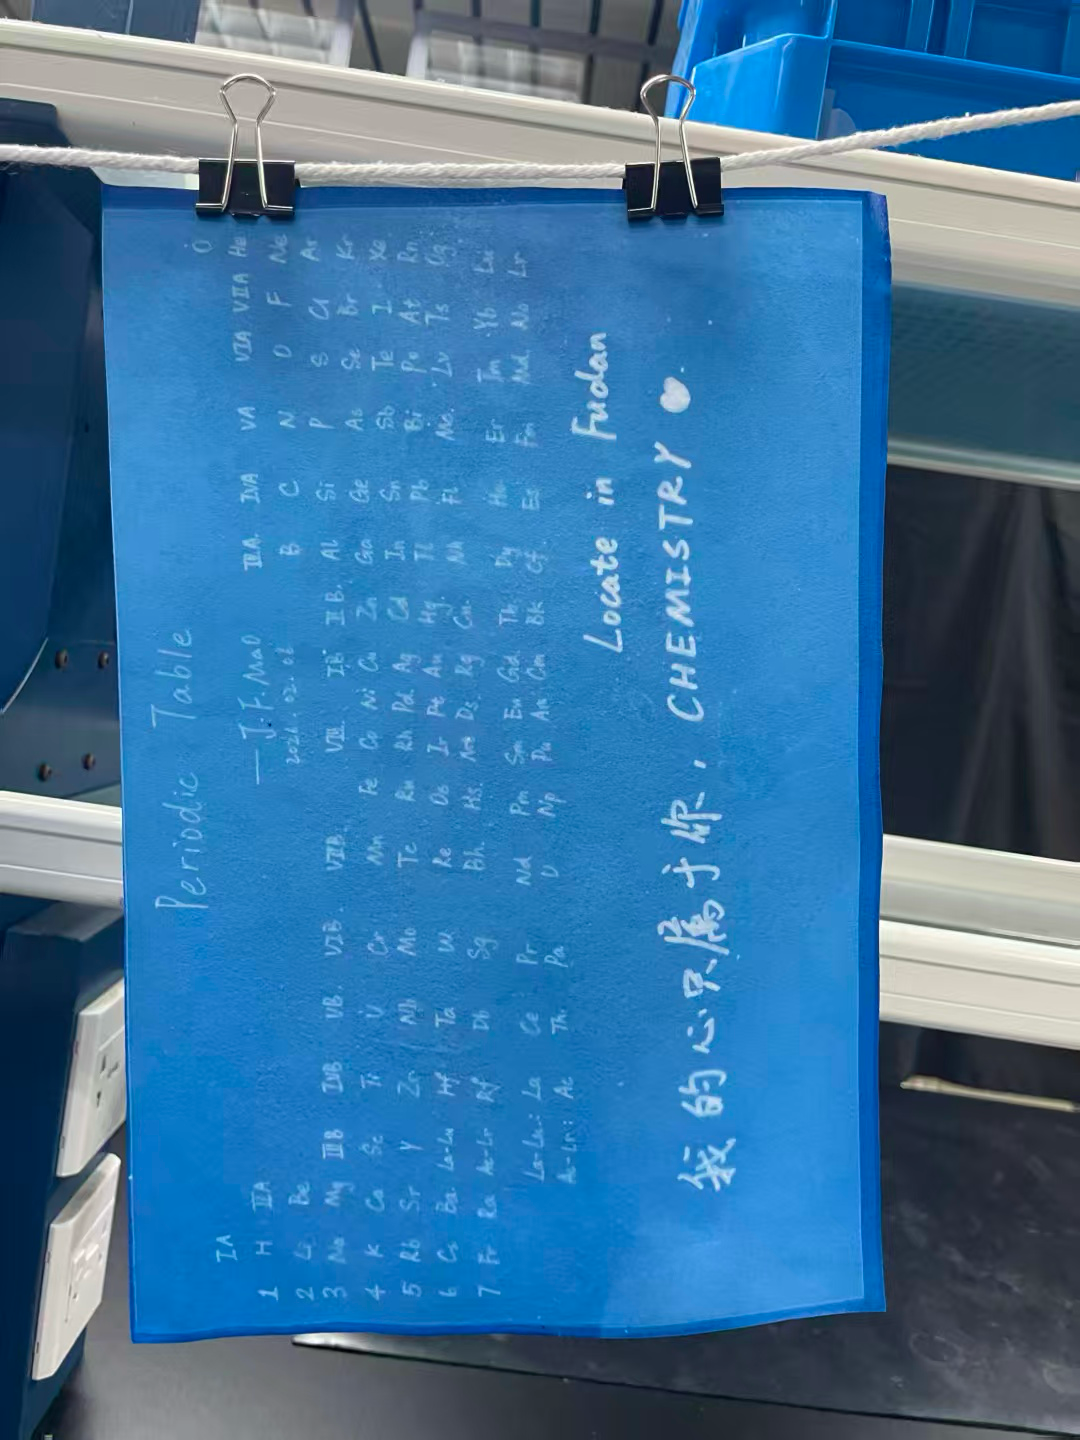 Periodic Table
— J.F. Mao
IA 0
1 H IIA IIIA IVA VA VIA VIIA He
2 Li Be B C N O F Ne
3 Na Mg IIIB IVB VB VIB VIIB VIII IB IIB Al Si P S Cl Ar
4 K Ca Sc Ti V Cr Mn Fe Co Ni Cu Zn Ga Ge As Se Br Kr
5 Rb Sr Y Zr Nb Mo Tc Ru Rh Pd Ag Cd In Sn Sb Te I Xe
6 Cs Ba La-Lu Hf Ta W Re Os Ir Pt Au Hg Tl Pb Bi Po At Rn
7 Fr Ra Ac-Lr Rf Db Sg Bh Hs Ds Rg Cn Fl Lv Ts Og
La-Lu: La Ce Pr Nd Pm Sm Eu Gd Tb Dy Ho Er Tm Yb Lu
Ac-Lr: Ac Th Pa U Np Pu Am Cm Bk Cf Es Fm Md No Lr
Locate in Fudan
我的心只属于你, CHEMISTRY